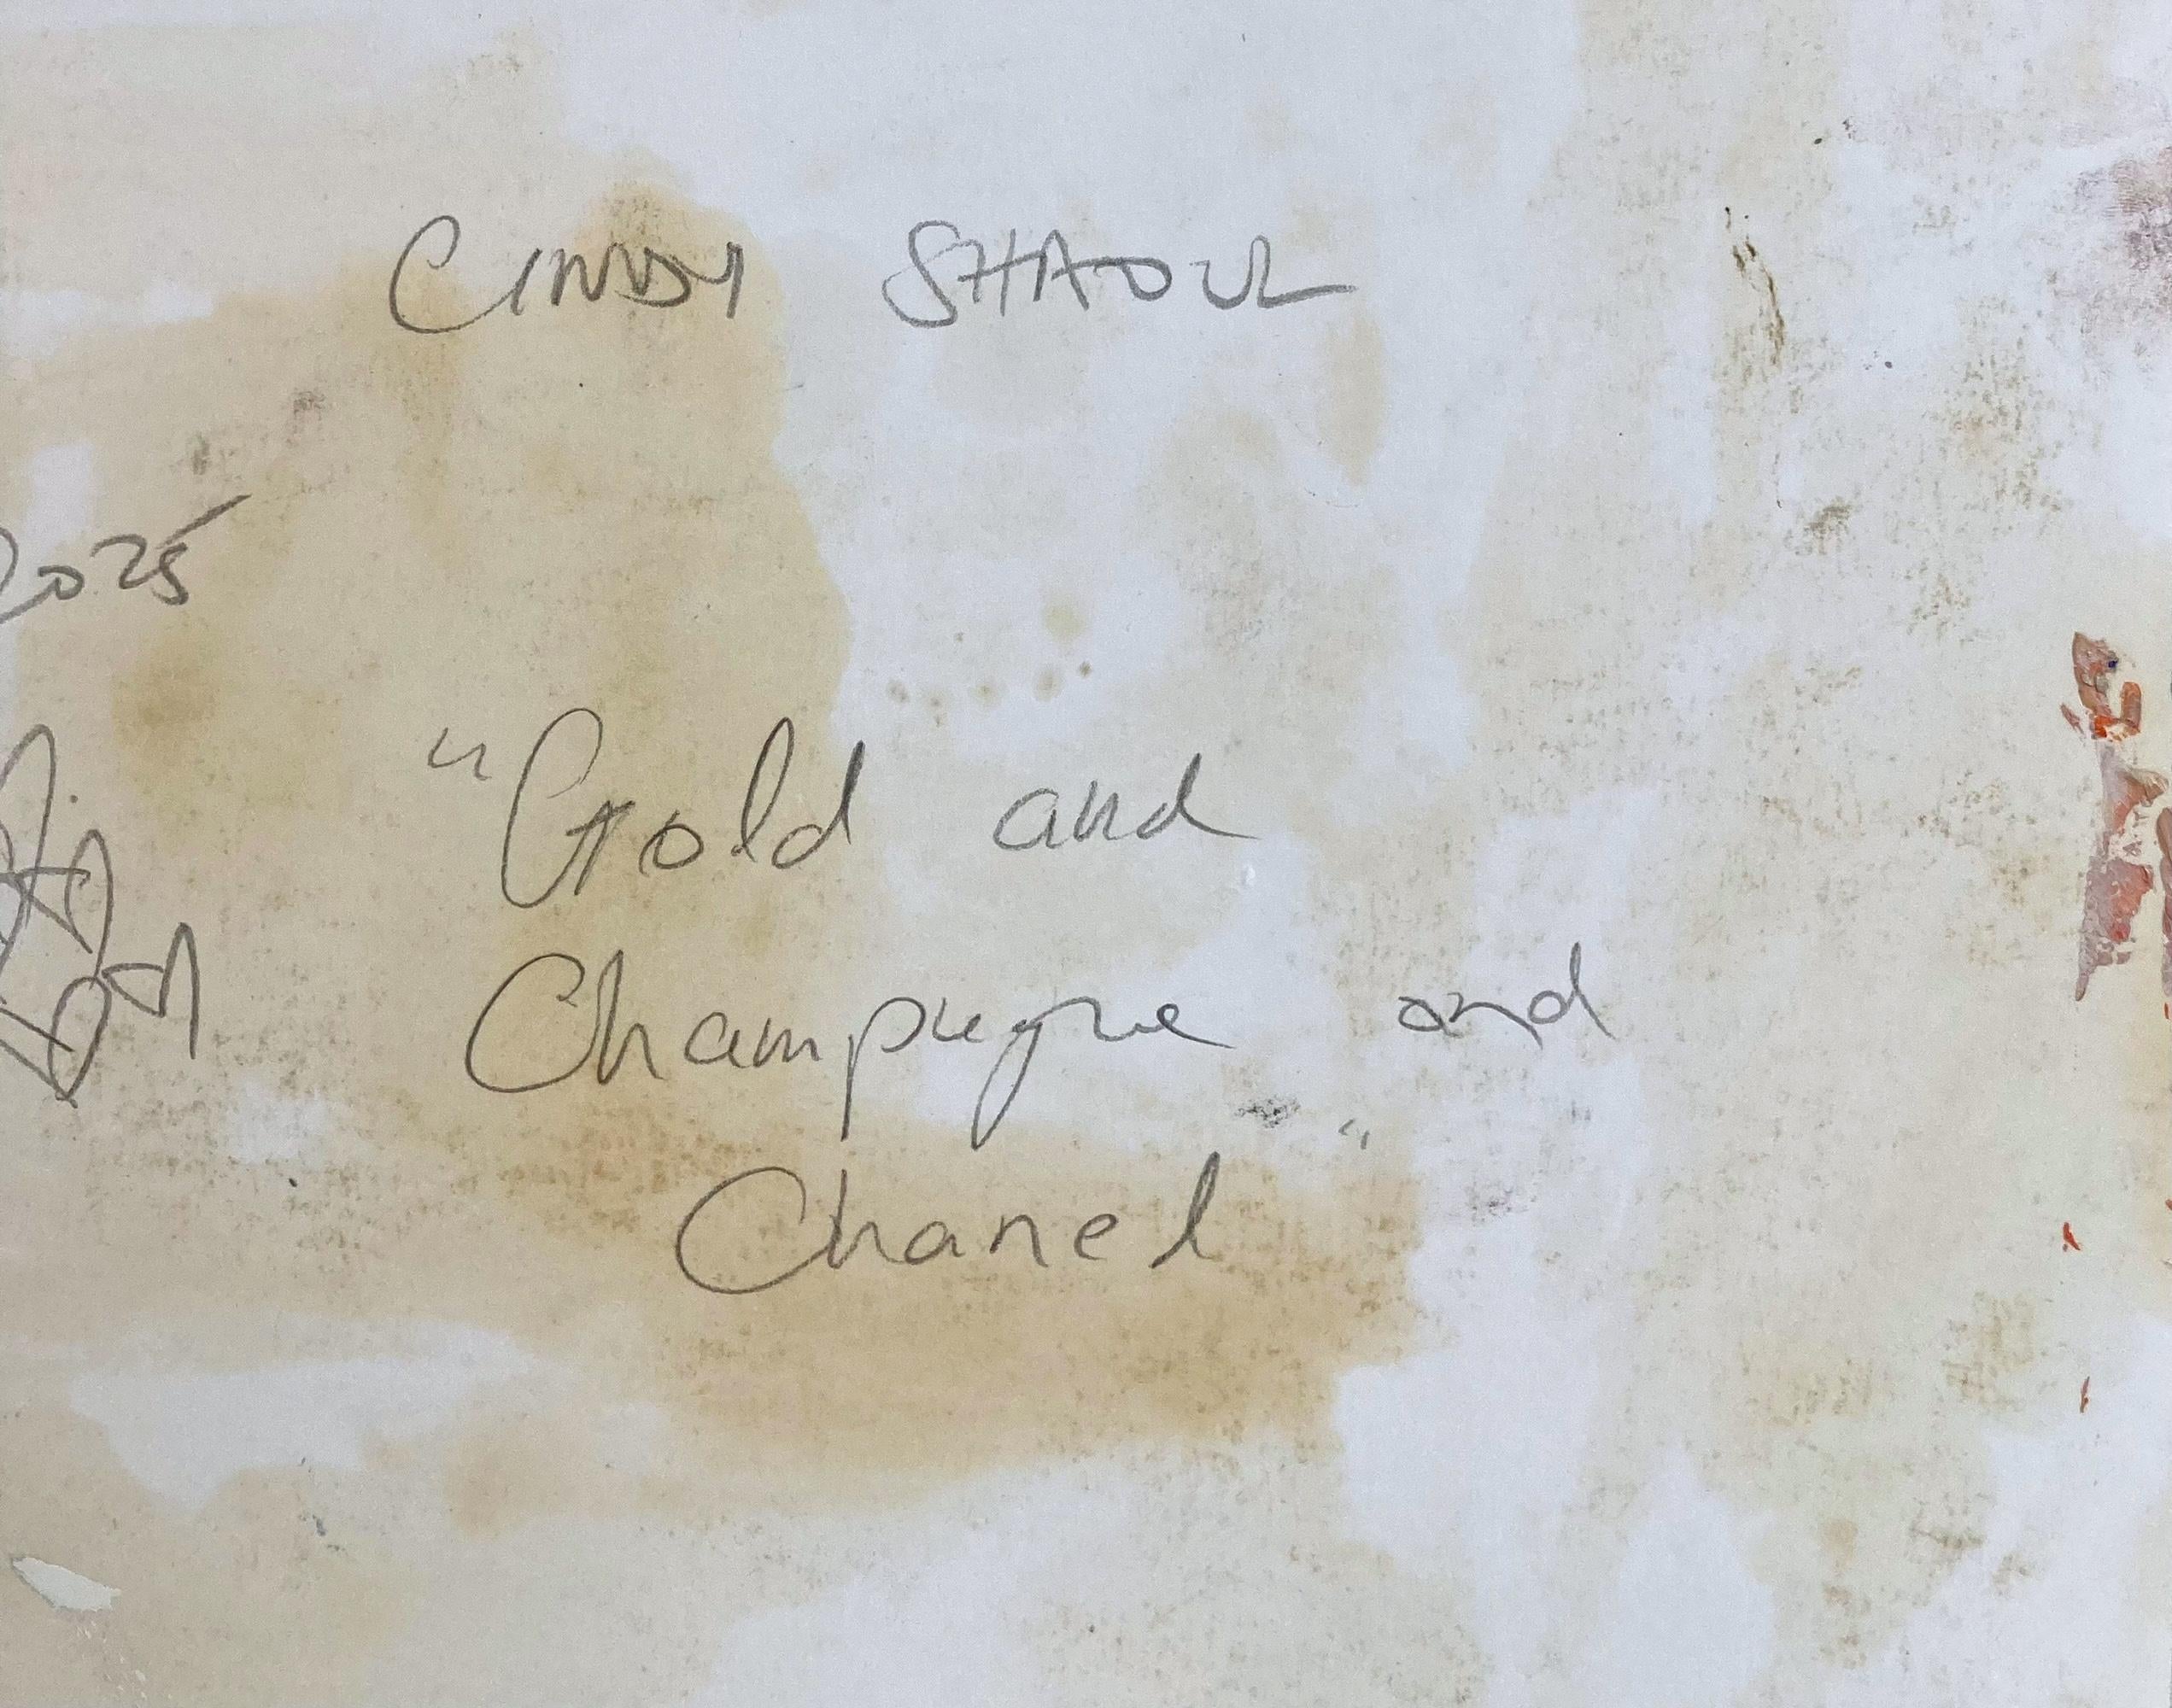 CINDY SHAOUL
2025
"Gold and
Champagne and
Chanel"